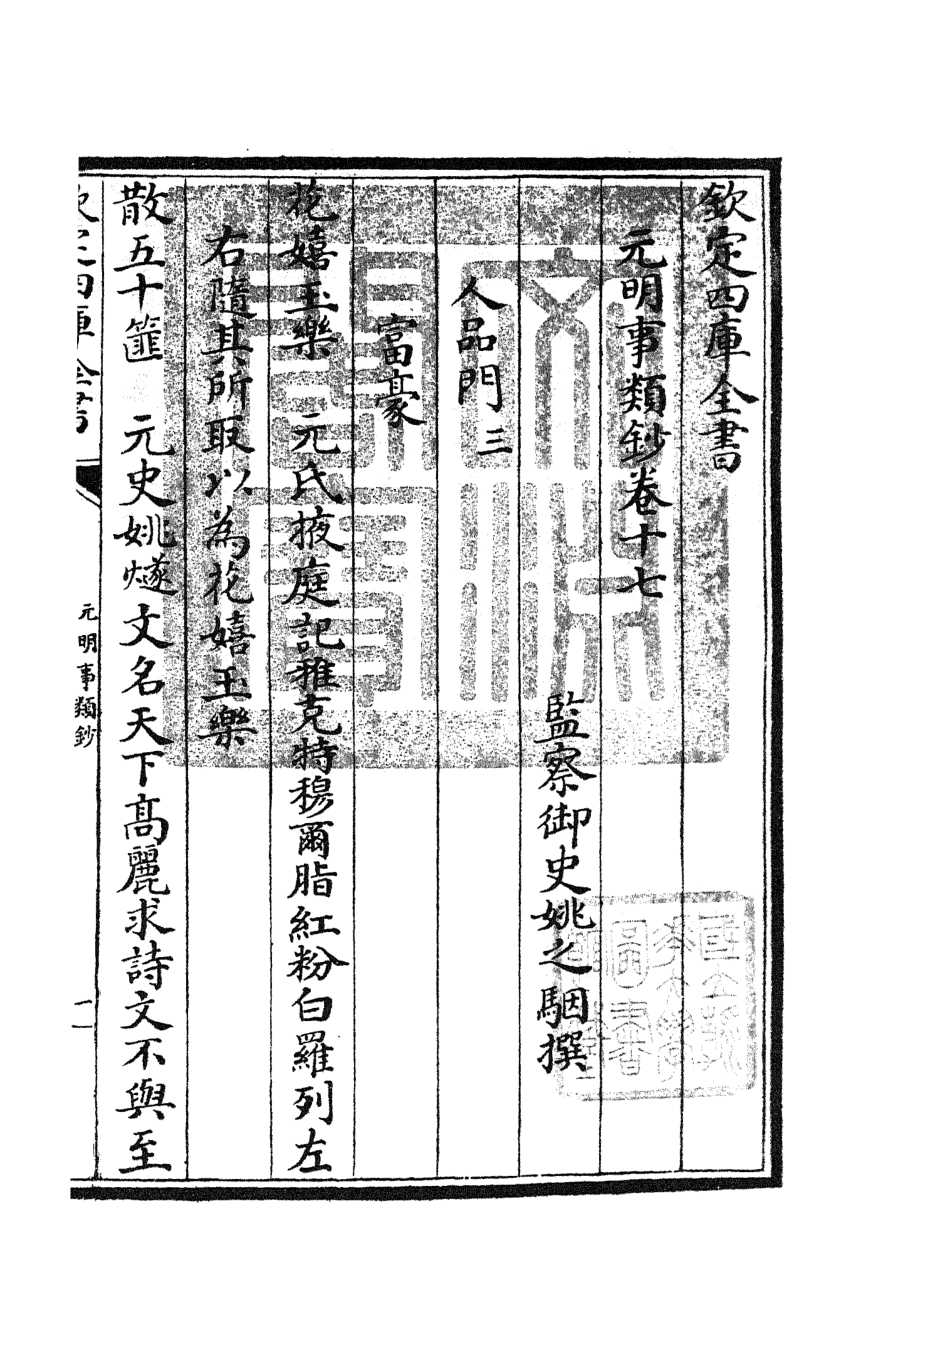 欽定四庫全書
元明事類鈔卷十七
監察御史姚之駰撰
人品門三
富豪
花嬉玉樂　元氏掖庭記雅克特穆爾脂紅粉白羅列左
右隨其所取以為花嬉玉樂
散五十篚　元史姚燧文名天下高麗求詩文不與至
欽定四庫全書
元明事類鈔
一